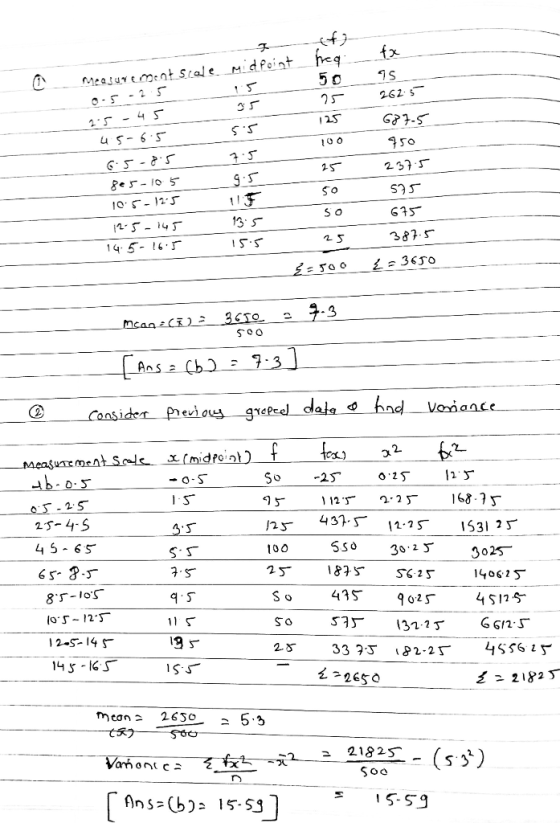 x (f)
① Measurement Scale Midpoint freq fx
0.5 - 2.5 1.5 50 75
2.5 - 4.5 3.5 75 262.5
4.5 - 6.5 5.5 125 687.5
6.5 - 8.5 7.5 100 750
8.5 - 10.5 9.5 25 237.5
10.5 - 12.5 11.5 50 575
12.5 - 14.5 13.5 50 675
14.5 - 16.5 15.5 25 387.5
Σ = 500 Σ = 3650
mean = (x̄) = 3650/500 = 7.3
[Ans = (b) = 7.3]
② Consider previous groped data & find variance
Measurement Scale x (midpoint) f f(x) x2 fx2
-1.5 - 0.5 -0.5 50 -25 0.25 12.5
0.5 - 2.5 1.5 75 112.5 2.25 168.75
2.5 - 4.5 3.5 125 437.5 12.25 1531.25
4.5 - 6.5 5.5 100 550 30.25 3025
6.5 - 8.5 7.5 25 187.5 56.25 1406.25
8.5 - 10.5 9.5 50 475 90.25 4512.5
10.5 - 12.5 11.5 50 575 132.25 6612.5
12.5 - 14.5 13.5 25 337.5 182.25 4556.25
14.5 - 16.5 15.5 — Σ = 2650 Σ = 21825
mean (x̄) = 2650/500 = 5.3
Varianc = Σfx2/n - x̄2 = 21825/500 - (5.3²)
[Ans = (b) = 15.59] = 15.59